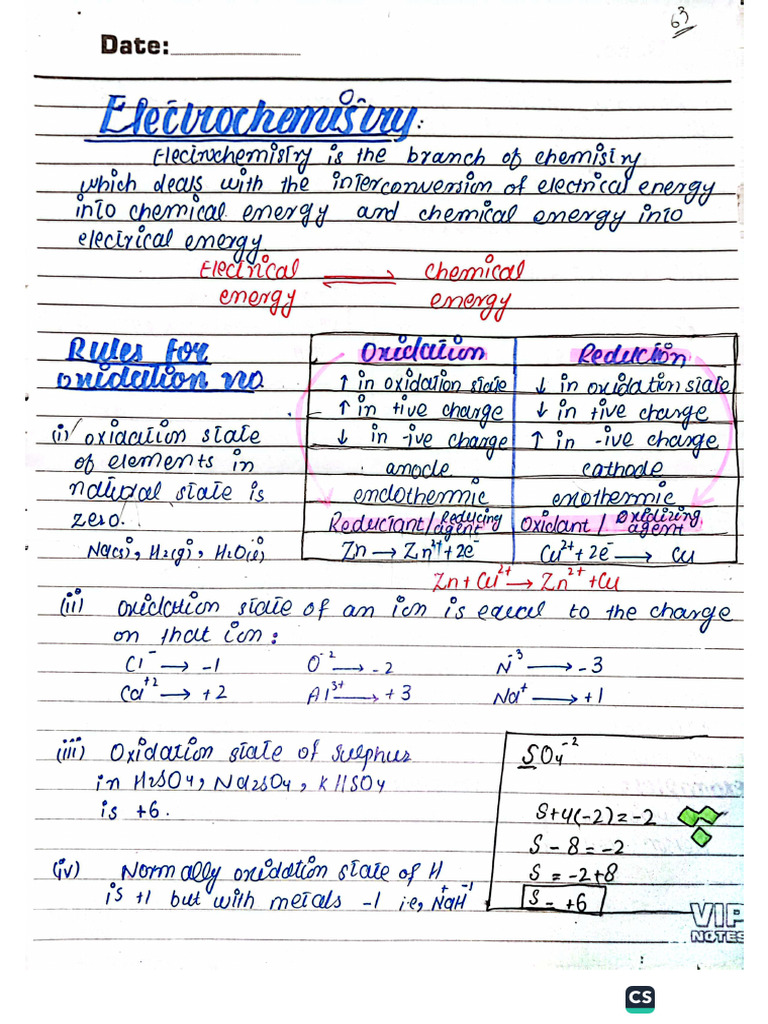 63
Date:
Electrochemistry:
Electrochemistry is the branch of chemistry
which deals with the interconversion of electrical energy
into chemical energy and chemical energy into
electrical energy.
Electrical energy ⇌ Chemical energy
Rules for
oxidation no.
(i) oxidation state
of elements in
natural state is
zero.
Na(s), H2(g), H2O(l)
Oxidation | Reduction
↑ in oxidation state | ↓ in oxidation state
↑ in +ive charge | ↓ in +ive charge
↓ in -ive charge | ↑ in -ive charge
anode | cathode
endothermic | exothermic
Reductant/Reducing agent | Oxidant / Oxidizing agent
Zn → Zn²⁺ + 2e⁻ | Cu²⁺ + 2e⁻ → Cu
Zn + Cu²⁺ → Zn²⁺ + Cu
(ii) oxidation state of an ion is equal to the charge
on that ion:
Cl⁻ → -1 O⁻² → -2 N⁻³ → -3
Ca⁺² → +2 Al³⁺ → +3 Na⁺ → +1
(iii) Oxidation state of Sulphur
in H2SO4, Na2SO4, KHSO4
is +6.
(iv) Normally oxidation state of H
is +1 but with metals -1 i.e, Na⁺H⁻¹
SO4⁻²
S+4(-2)=-2
S - 8 = -2
S = -2+8
S = +6
VIP
NOTES
CS